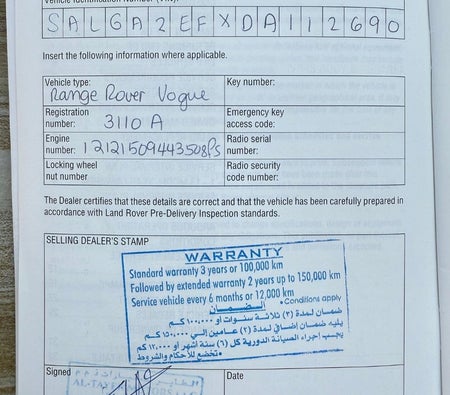 Vehicle Identification Number (VIN):
SALGA2EFXDA112690
Insert the following information where applicable.
Vehicle type:
Range Rover Vogue
Key number:
Registration
number: 3110 A
Emergency key
access code:
Engine
number: 12121509443508PS
Radio serial
number:
Locking wheel
nut number
Radio security
code number:
The Dealer certifies that these details are correct and that the vehicle has been carefully prepared in
accordance with Land Rover Pre-Delivery Inspection standards.
SELLING DEALER'S STAMP
WARRANTY
Standard warranty 3 years or 100,000 km
Followed by extended warranty 2 years up to 150,000 km
Service vehicle every 6 months or 12,000 km
• Conditions apply
الضمان
ضمان لمدة (٣) ثلاثة سنوات أو ١٠٠,٠٠٠ كم
يليه ضمان إضافي لمدة (٢) عامين إلى ١٥٠,٠٠٠ كم
يجب اجراء الصيانة الدورية كل (٦) ستة أشهر أو ١٢,٠٠٠ كم
• تخضع للأحكام والشروط
Signed
Date